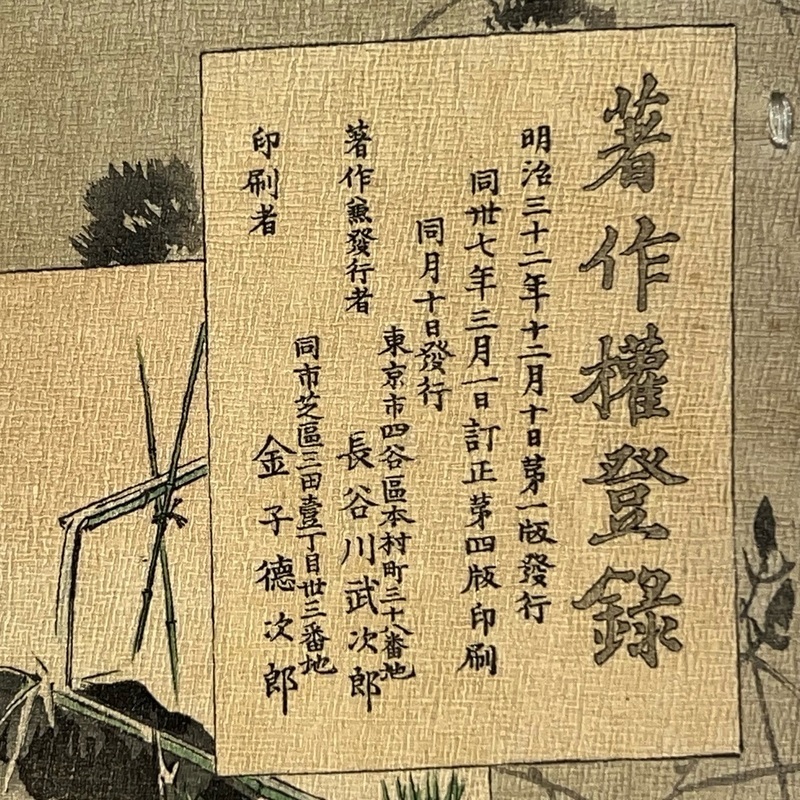 著作權登錄
明治三十二年十二月十日第一版發行
同卅七年三月一日訂正第四版印刷
同月十日發行
東京市四谷區本村町三十八番地
著作兼發行者 長谷川武次郎
同市芝區三田壹丁目卅三番地
印刷者 金子德次郎